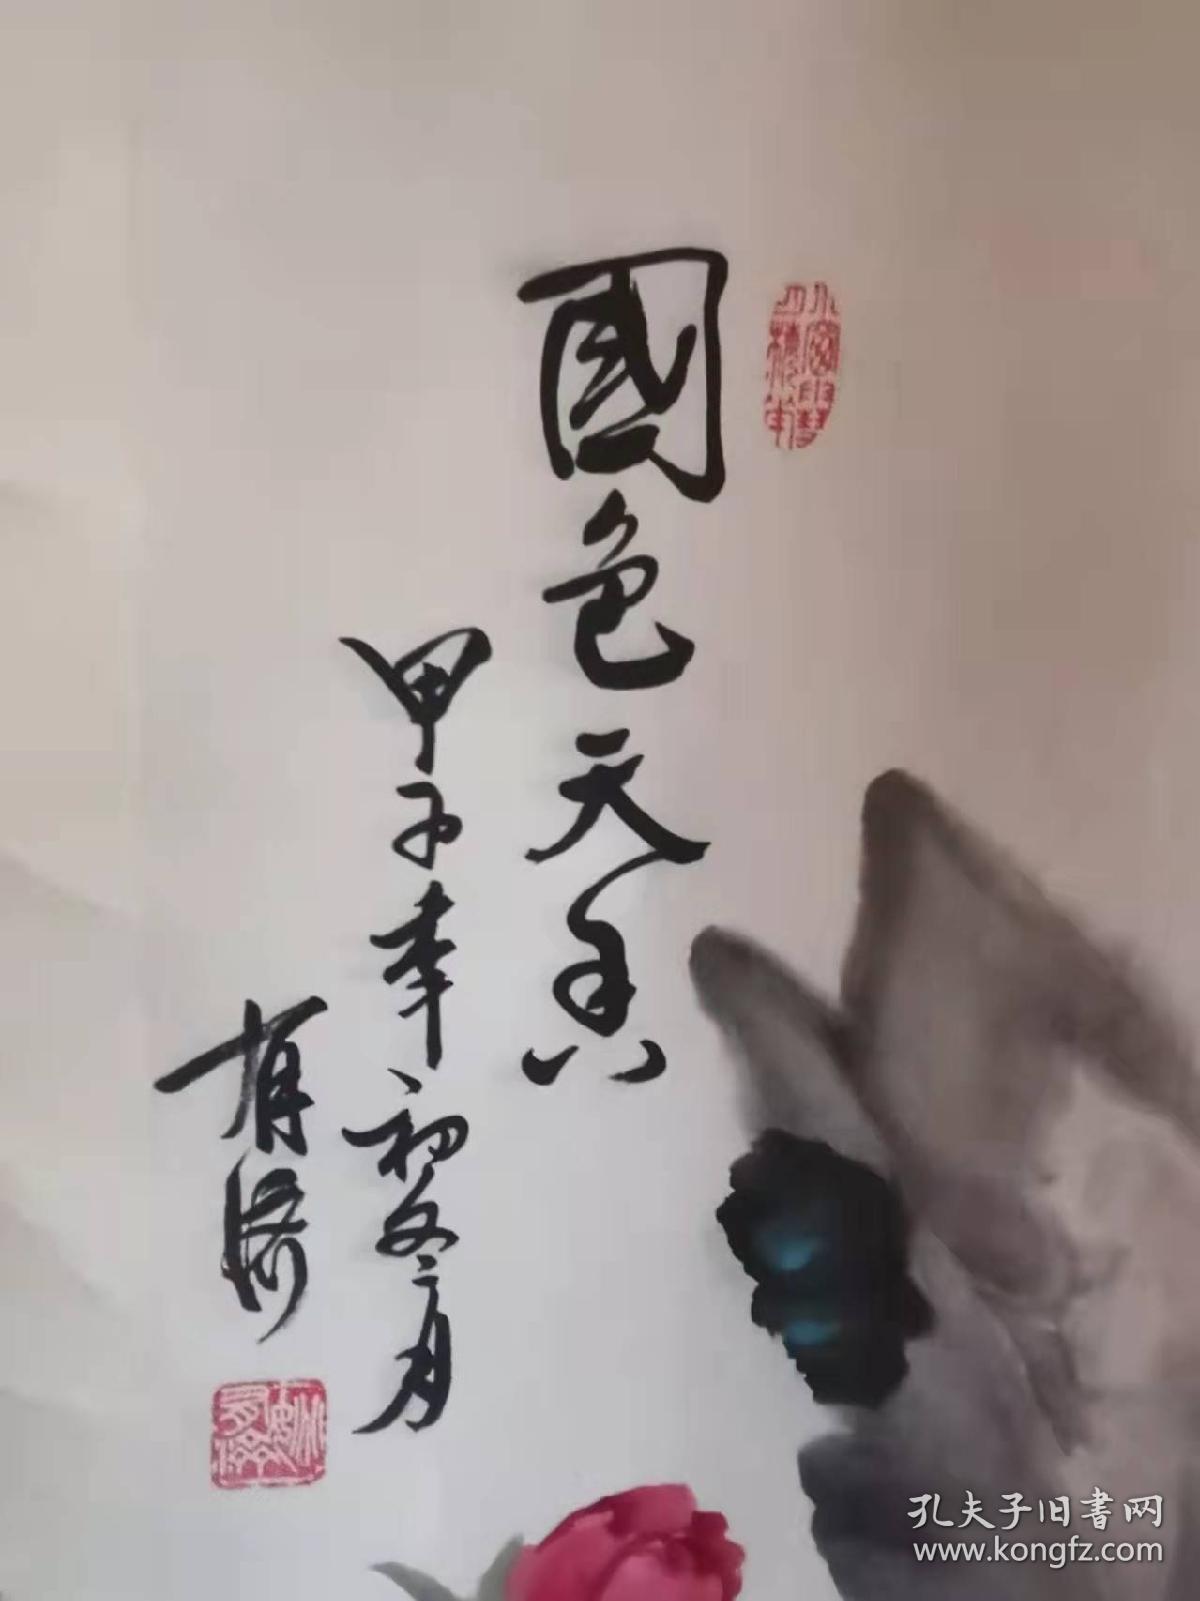 國色天香
甲子年初冬二月
有济
孔夫子旧书网
www.kongfz.com